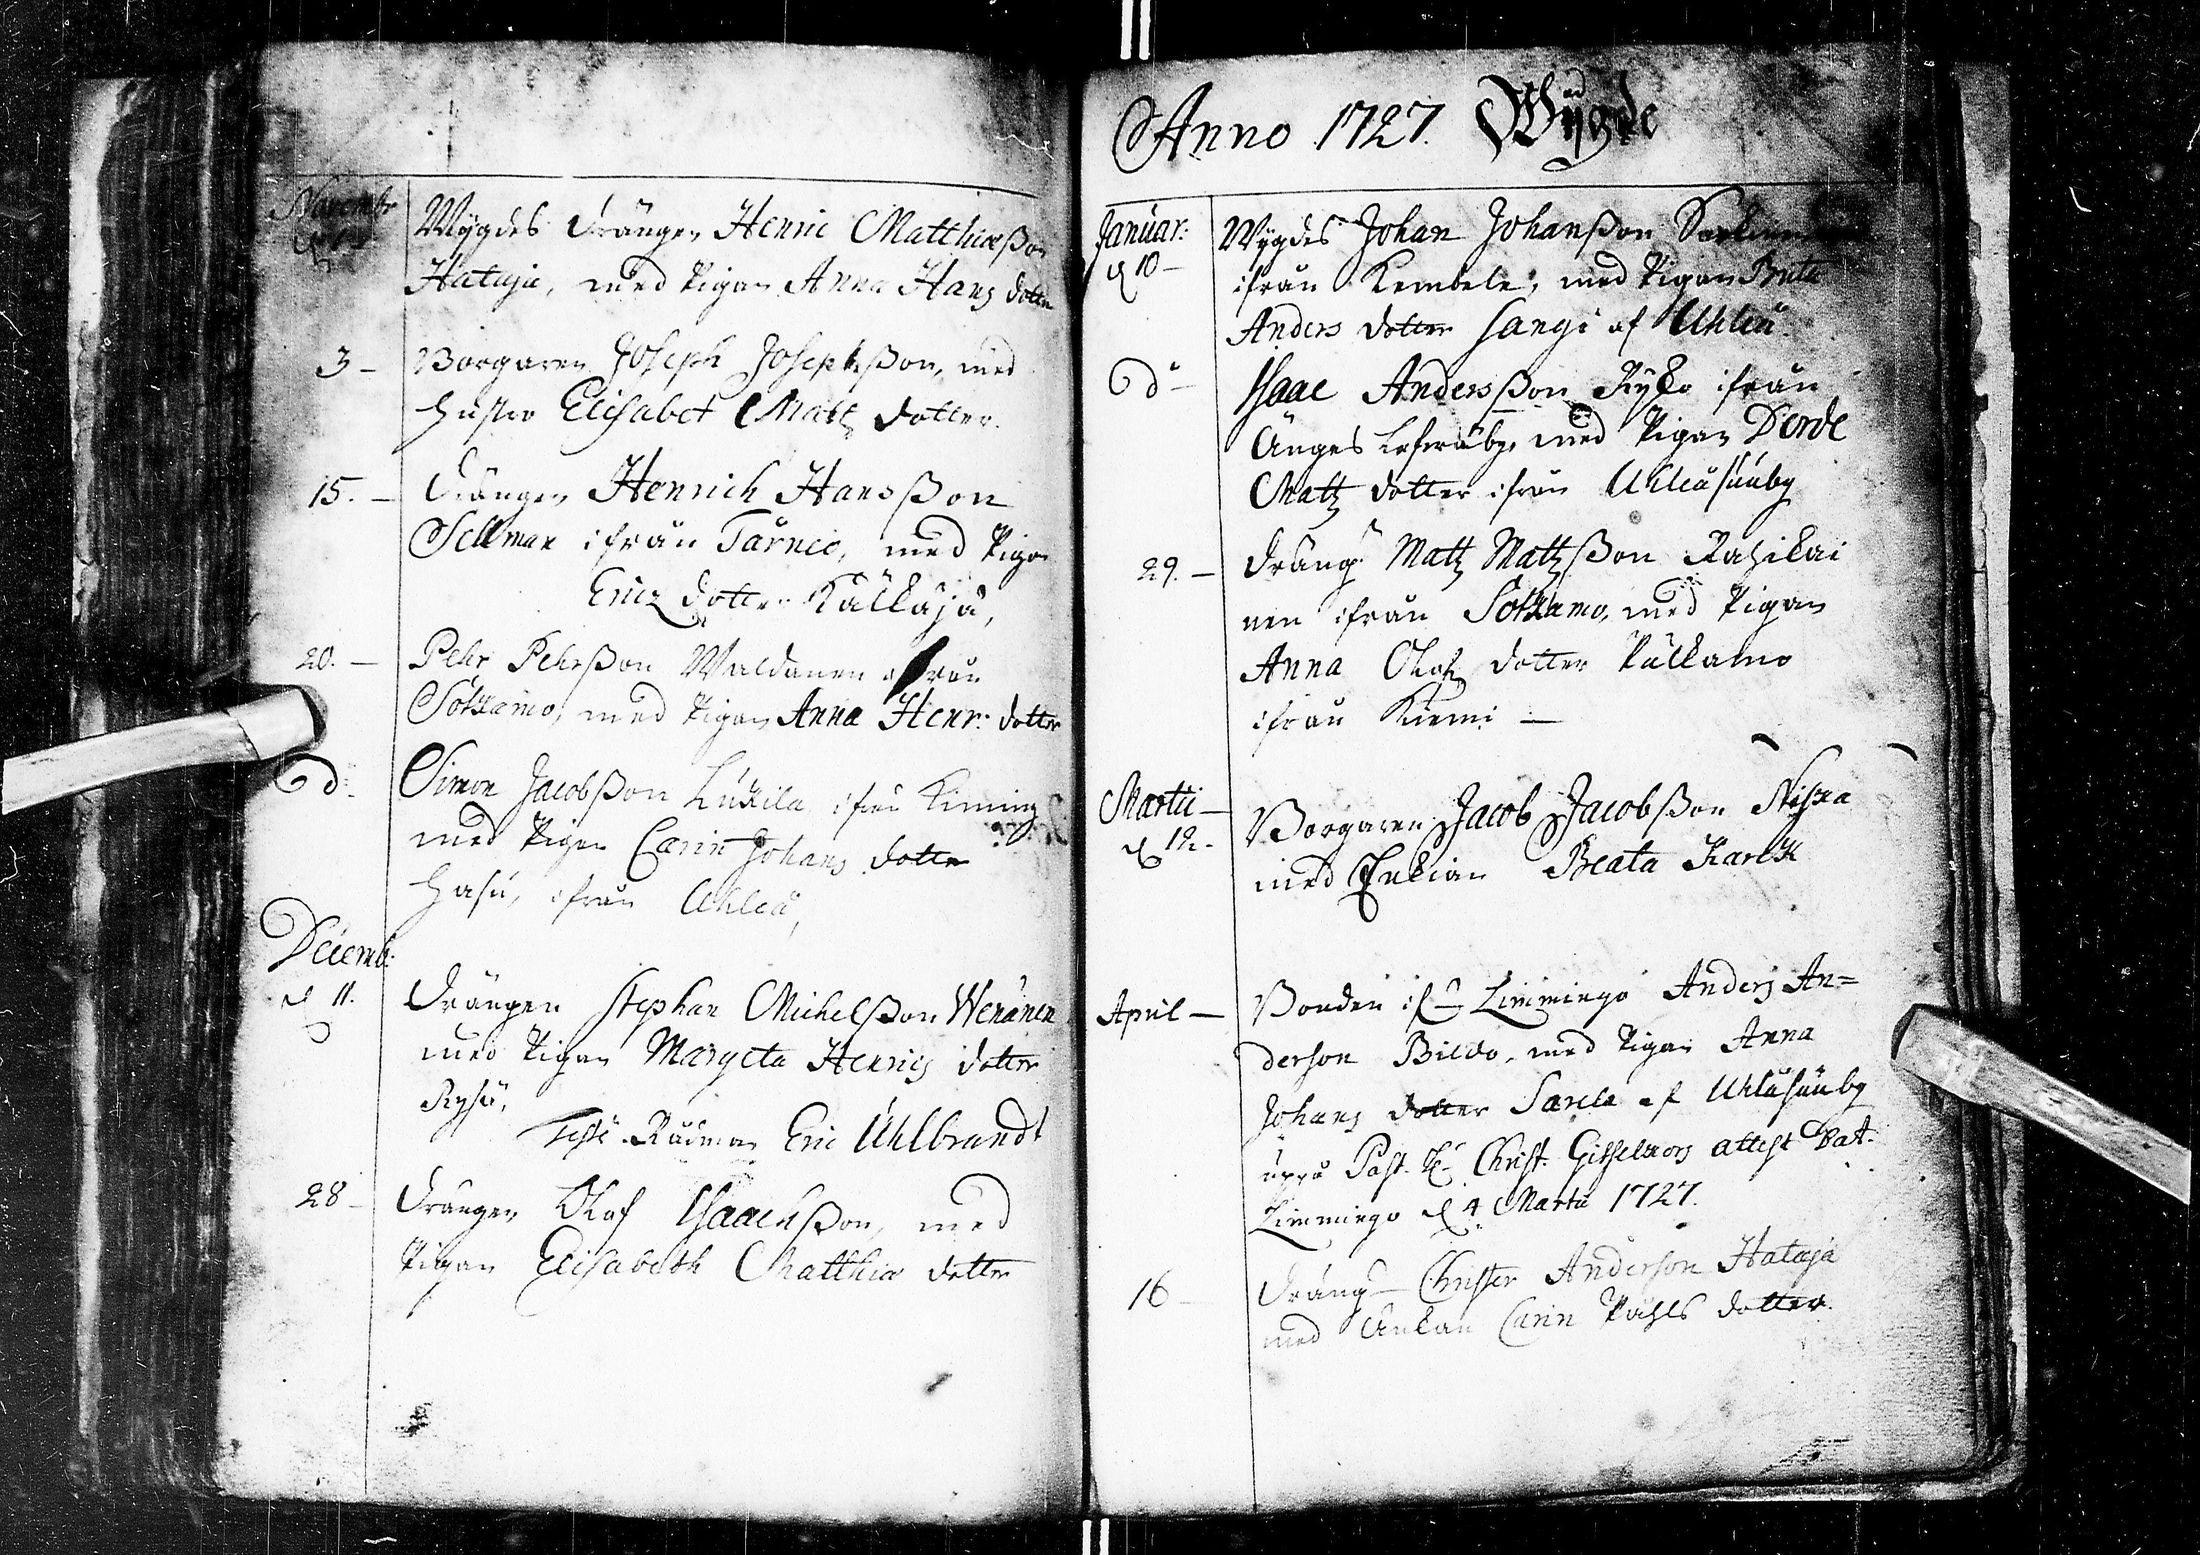 Novembr
Wygdes Drängen Henric Matthiæßon
Hataja, med Pigan Anna Hans dotter
3 – Borgaren Joseph Josephßon, med
hustro Elisabet Matz dotter.
15. – Drängen Henrich Hansßon
Sellman ifrån Tårneo, med Pigan
Ericz dotter Källäjä,
20. – Pehr Pehrßon Waldanen ifrån
Sotkamo, med Pigan Anna Henr: dotter
d. Simon Jacobßon Lukila ifrån Kiming
med Pigan Carin Johans dotter
Hasu, ifrån Uhleå,
Decemb:
d 11. Drängen Stephan Michelßon Wenänen
med Pigan Margeta Henrics dotter
Ryså,
Teste Rådman Eric Uhlbrandt
28 – Drängen Olof Isaachßon, med
Pigan Elisabeth Matthiæ dotter
Anno 1727. Wygde
Januar: Wygdes Johan Johanßon
d 10 – ifrån Kembele, med Pigan Brita
Anders dotter Hangi af Uhleå.
d:o – Isaac Andersßon Ryko ifrån
Ånges med Pigan Derde
Matz dotter ifrån Uhleåsuuby
29. – Dräng Matz Matzßon Rasikai
nen ifrån Sotkamo, med Pigan
Anna Olofz dotter Pälkamo
ifrån Kiemi –
Martii – Borgaren Jacob Jacobßon Niska
d 12. – med Enkian Beata Karck
April – Bonden ifr: Limmingo Anders An=
derson Bildo, med Pigan Anna
Johans dotter Sarela af Uhleåsuuby
uppå Past. Christ. attest Dat.
Limmingo d 4 Martii 1727.
16 – Dräng Christer Anderson Hataja
med Änkan Carin Påhls dotter.